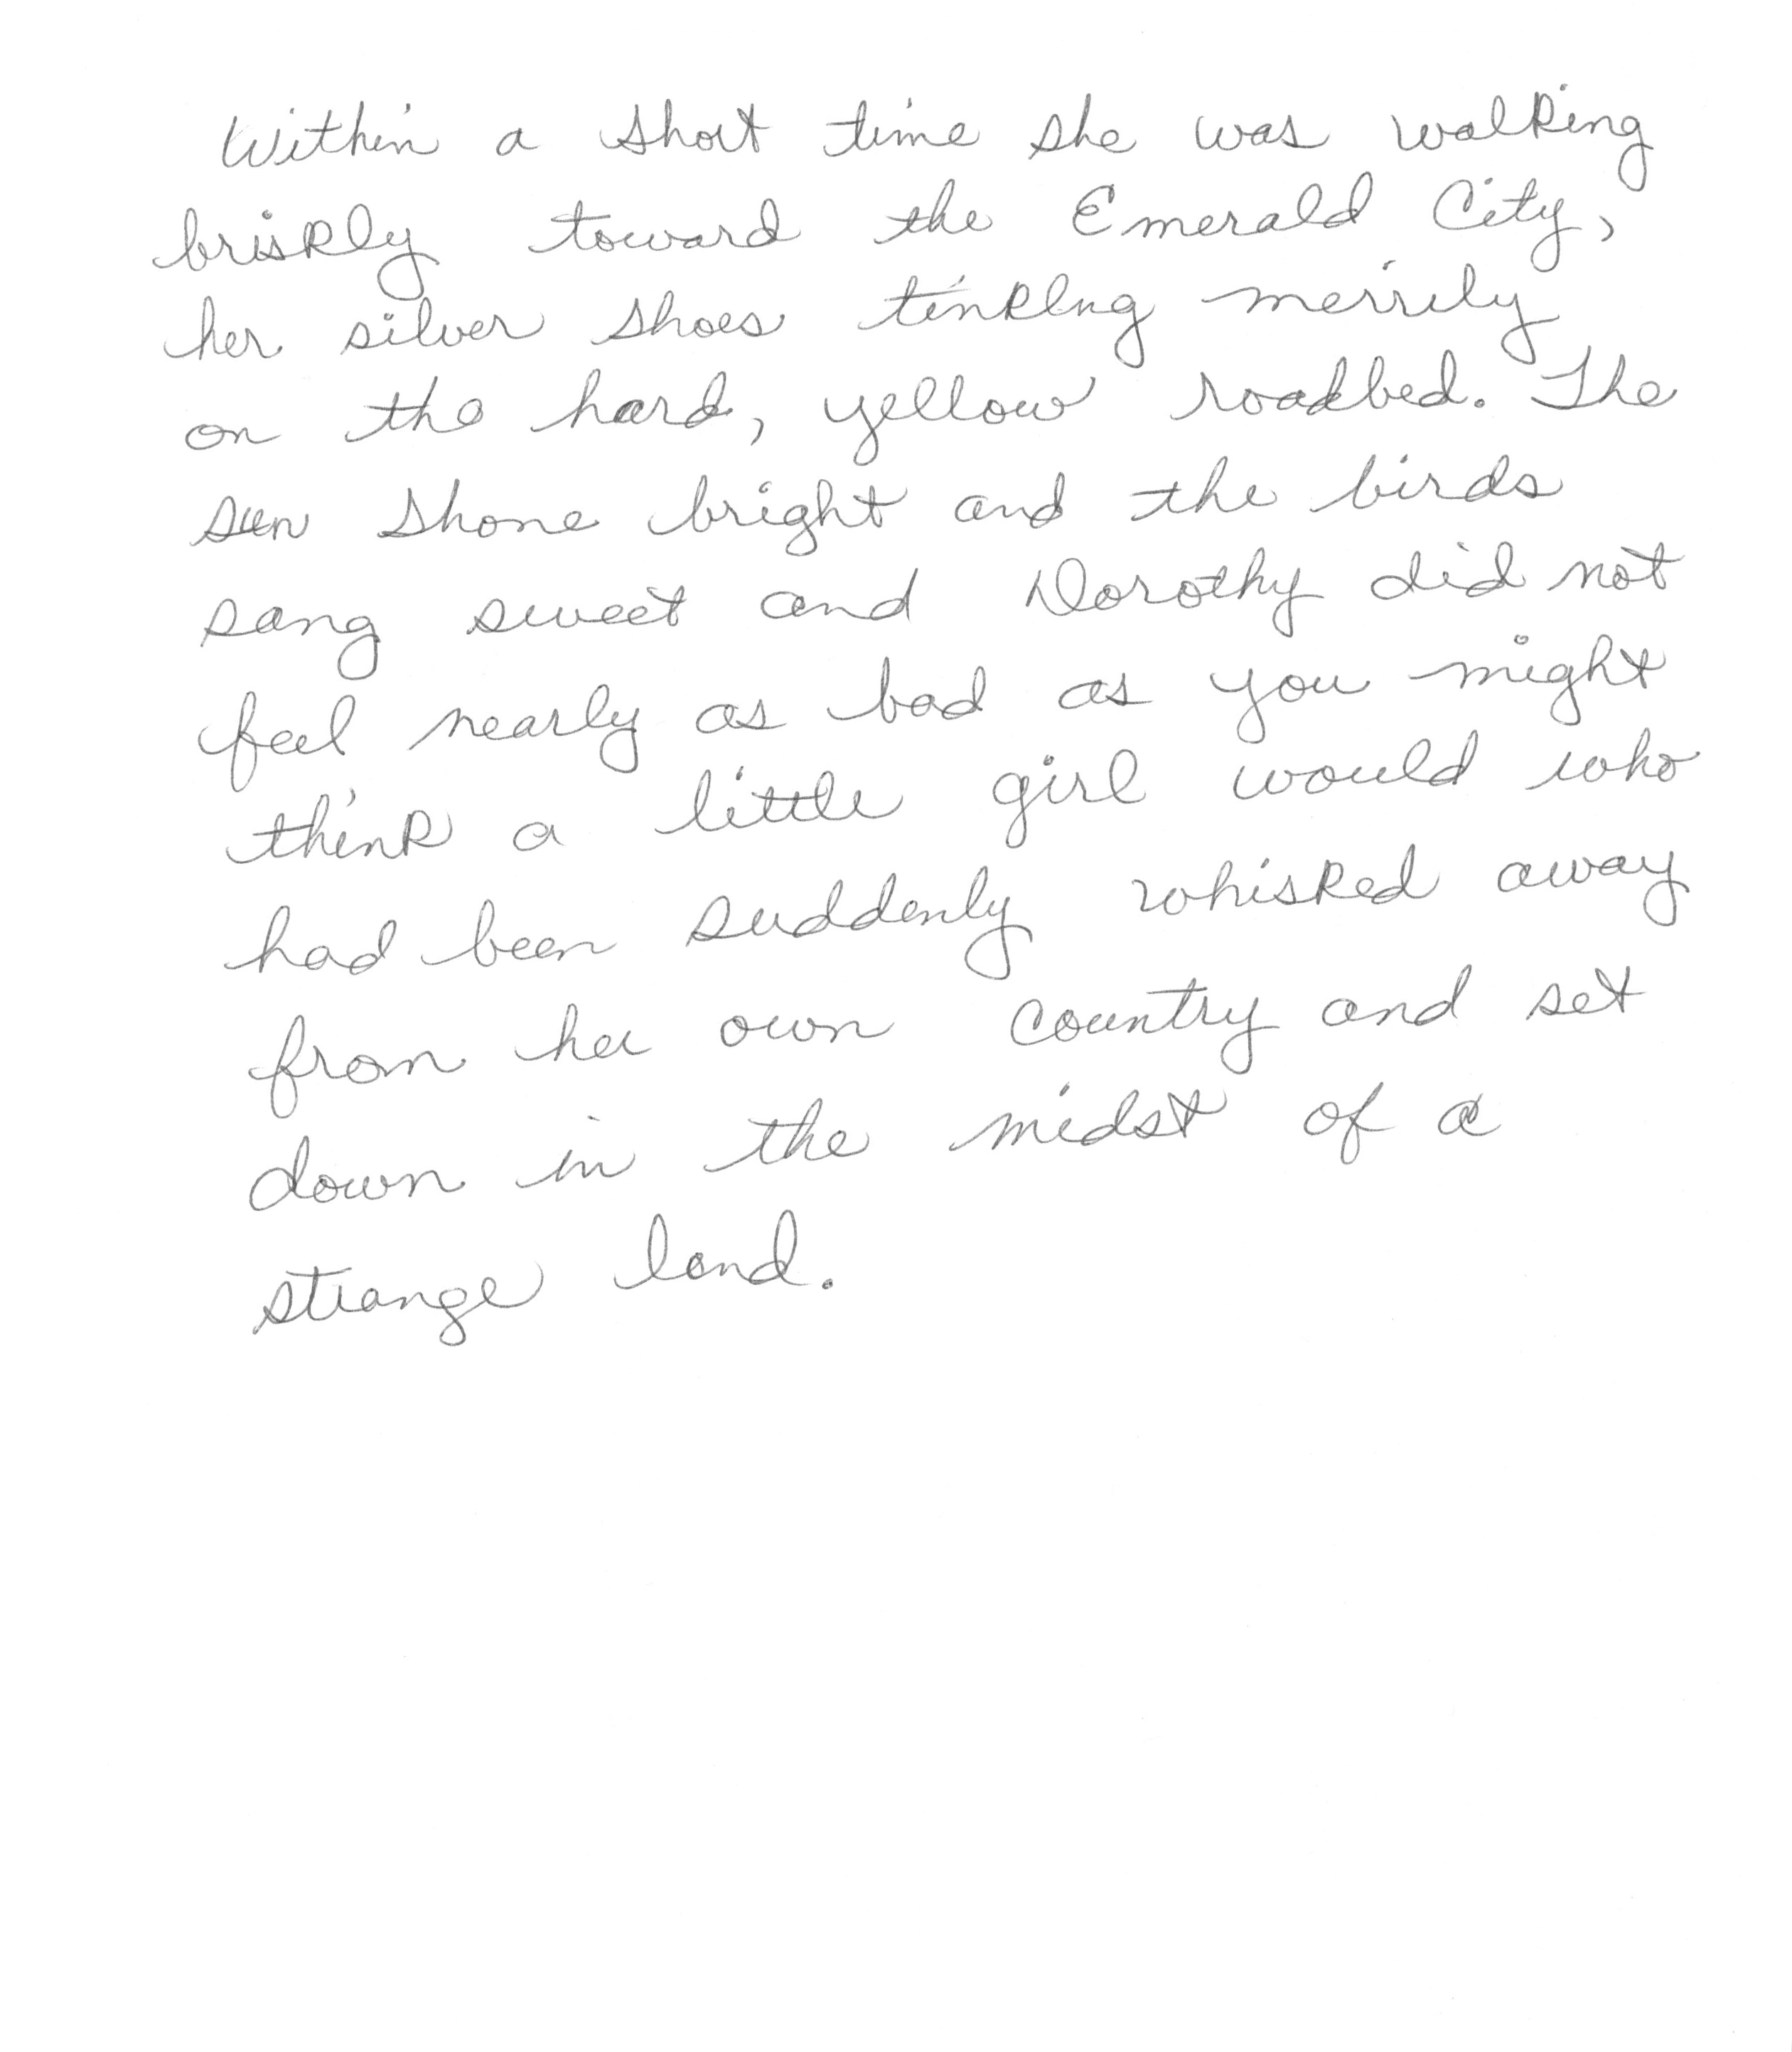 Within a short time she was walking
briskly toward the Emerald City,
her silver shoes tinklng merrily
on the hard, yellow roadbed. The
sun shone bright and the birds
sang sweet and Dorothy did not
feel nearly as bad as you might
think a little girl would who
had been suddenly whisked away
from her own country and set
down in the midst of a
strange land.